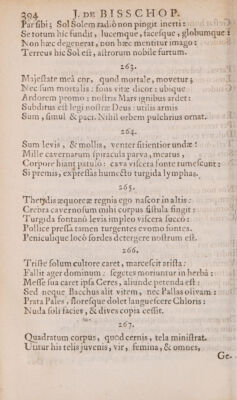 294 J. DE BISSCHOP.
Par sibi; Sol Solem radio non pingit inerti:
Se totum hic fundit, lucemque, facesque, globumque:
Non hæc degenerat, non hæc mentitur imago:
Terreus hic Sol est, astrorum nobile furtum.
263.
Majestate meâ cor, quod mortale, movetur;
Nec sum mortalis: fons vitæ dicor: ubique
Ardorem promo; nostris Mars ignibus ardet:
Subditus est legi nostræ Deus: utilis armis
Sum, simul & paci. Nihil orbem pulchrius ornat.
264.
Sum levis, & mollis, venter sitientior undæ:
Mille cavernarum spiracula parva, meatus,
Corpore hiant patulo: cava viscera fonte tumescunt;
Si premis, expressas humecto turgida lymphas.
265.
Thetydis æquoreæ regnis ego nascor in altis:
Crebra cavernosum mihi corpus fistula fingit:
Turgida fontano levis impleo viscera succo:
Pollice pressa tamen turgentes evomo fontes.
Peniculique loco sordes detergere nostrum est.
266.
Triste solum cultore caret, marcescit arista:
Fallit ager dominum: segetes moriuntur in herbâ:
Messe sua caret ipsa Ceres, aliunde petenda est:
Sed neque Bacchus alit vitem, nec Pallas olivam:
Prata Pales, floresque dolet languescere Chloris:
Nuda soli facies, & dives copia cessit.
267.
Quadratum corpus, quod cernis, tela ministrat.
Utitur his telis juvenis, vir, femina, & omnes,
Ge-